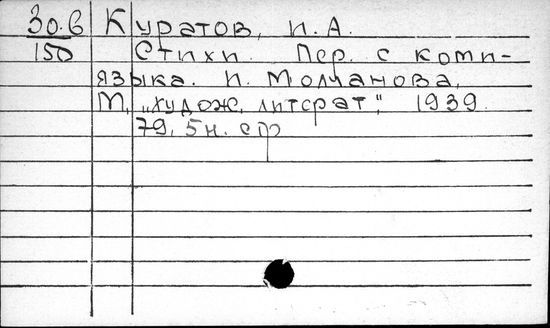 30.6 Куратов, И.А.
150 Стихи. Пер. с коми-
языка. И. Молчанова.
М, „худож. литерат", 1939.
79, 5н. с ф